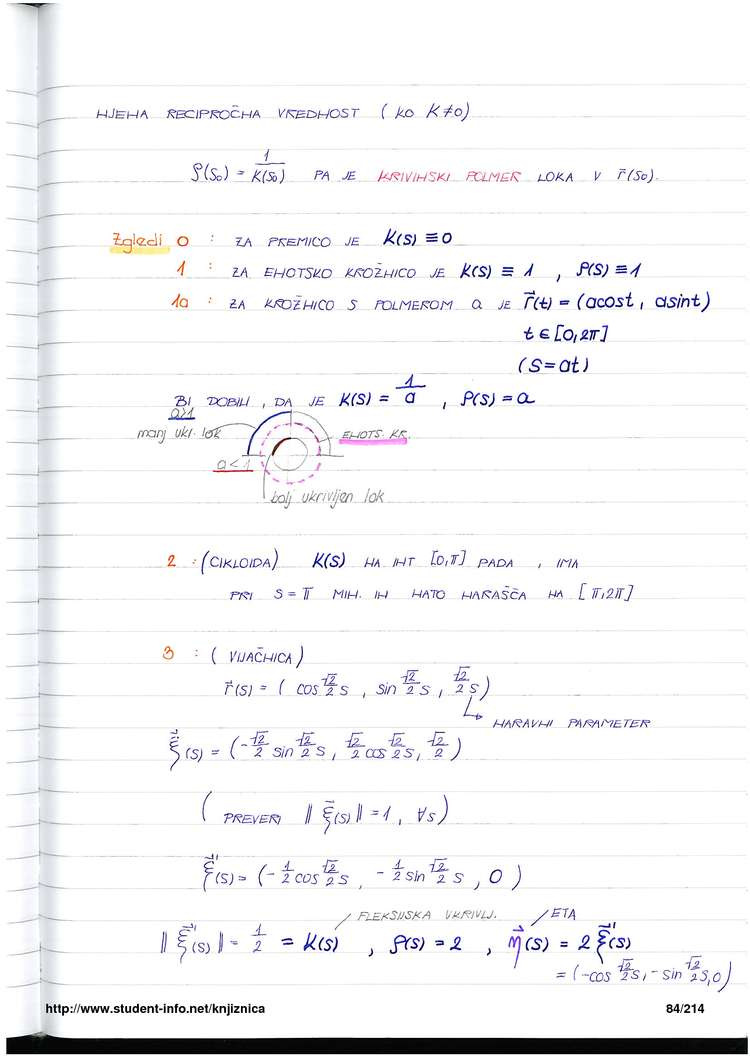 NJENA RECIPROČNA VREDNOST ( KO K≠0)
ρ(s₀) = 1/K(s₀) PA JE KRIVINSKI POLMER LOKA V r⃗(s₀).
Zgledi 0 : ZA PREMICO JE K(s) ≡ 0
1 : ZA ENOTSKO KROŽNICO JE K(s) ≡ 1 , ρ(s) ≡ 1
1a : ZA KROŽNICO S POLMEROM a JE r⃗(t) = (acost, asint)
t ∈ [0,2π]
(s=at)
BI DOBILI , DA JE K(s) = 1/a , ρ(s) = a
a>1
manj ukr. lok
ENOTS. KR.
a<1
bolj ukrivljen lok
2 : (CIKLOIDA) K(s) NA INT [0,π] PADA , IMA
PRI s = π MIN. IN NATO NARAŠČA NA [π,2π]
3 : ( VIJAČNICA)
r⃗(s) = ( cos √2/2 s , sin √2/2 s , √2/2 s )
NARAVNI PARAMETER
ξ⃗(s) = (-√2/2 sin √2/2 s , √2/2 cos √2/2 s , √2/2 )
( PREVERI ‖ξ⃗(s)‖ = 1 , ∀s)
ξ⃗'(s) = (-1/2 cos √2/2 s , -1/2 sin √2/2 s , 0 )
FLEKSIJSKA UKRIVLJ. ETA
‖ξ⃗'(s)‖ = 1/2 = K(s) , ρ(s) = 2 , η⃗(s) = 2 ξ⃗'(s)
= (-cos √2/2 s, -sin √2/2 s, 0)
http://www.student-info.net/knjiznica 84/214